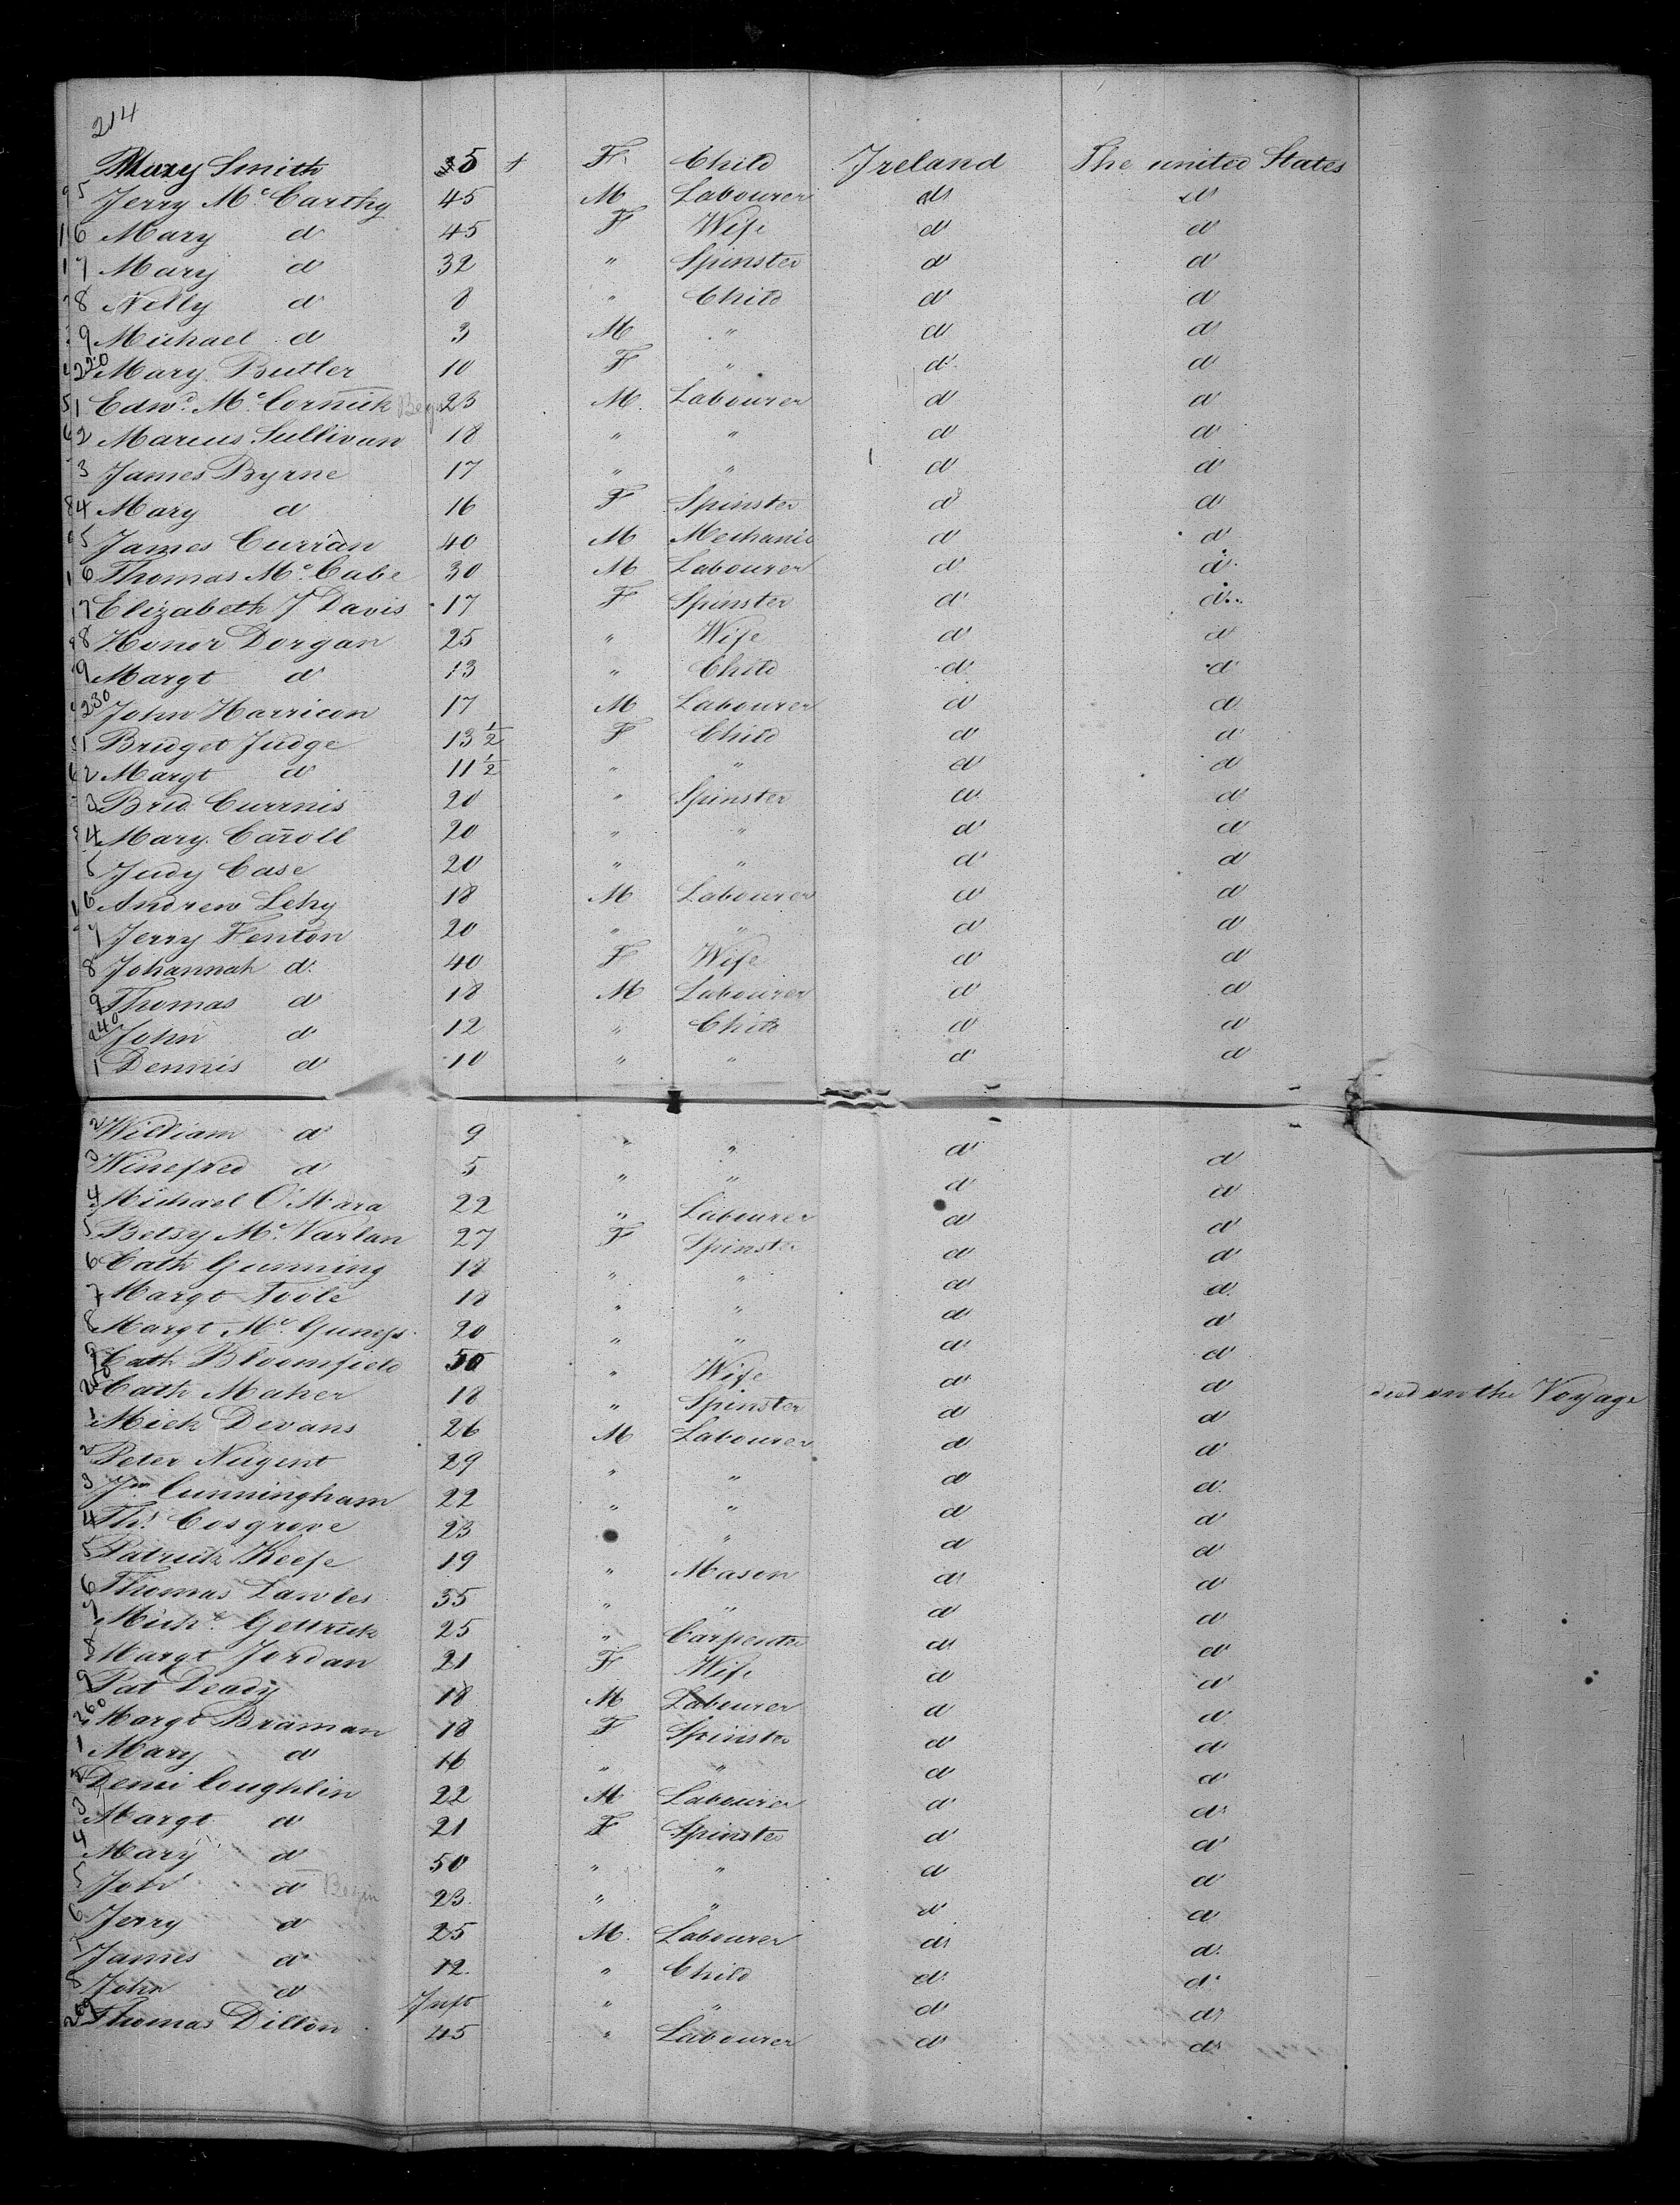 214
Mary Smith 5 F Child Ireland The united States
5 Jerry Mc Carthy 45 M Labourer do do
6 Mary do 45 F Wife do do
7 Mary do 32 " Spinster do do
8 Nelly do 8 " Child do do
9 Michael do 3 M " do do
220 Mary Butler 10 F " do do
1 Edwd. Mc Cormick 23 M Labourer do do
2 Marcus Sullivan 18 " " do do
3 James Byrne 17 " " do do
4 Mary do 16 F Spinster do do
5 James Curran 40 M Mechanic do do
6 Thomas Mc Cabe 30 M Labourer do do
7 Elizabeth J Davis 17 F Spinster do do
8 Honor Dorgan 25 " Wife do do
9 Margt do 13 " Child do do
230 John Harricon 17 M Labourer do do
1 Bridget Judge 13 1/2 F Child do do
2 Margt do 11 1/2 " " do do
3 Brid Currnis 20 " Spinster do do
4 Mary Caroll 20 " " do do
5 Judy Case 20 " " do do
6 Andrew Lehy 18 M Labourer do do
7 Jerry Fenton 20 " " do do
8 Johannah do 40 F Wife do do
9 Thomas do 18 M Labourer do do
240 John do 12 " Child do do
1 Dennis do 10 " " do do
2 William do 9 " " do do
3 Winefred do 5 " " do do
4 Michael O'Mara 22 " Labourer do do
5 Betsy Mc Varlan 27 F Spinster do do
6 Cath Gunning 18 " " do do
7 Margt Toole 18 " " do do
8 Margt Mc 20 " " do do
9 Cath Bloomfield 50 " Wife do do
250 Cath Maher 18 " Spinster do do died on the Voyage
1 Mick Devans 26 M Labourer do do
2 Peter Nugent 29 " " do do
3 Jno Cunningham 22 " " do do
4 Ths. Cosgrove 23 " do do
5 Patrick Keefe 19 " Mason do do
6 Thomas Lawles 35 " " do do
7 Michl. Gettrick 25 " Carpenter do do
8 Margt Jordan 21 F Wife do do
9 Pat Deady 18 M Labourer do do
260 Margt Braman 18 F Spinster do do
1 Mary do 16 " " do do
2 Denni Coughlin 22 M Labourer do do
3 Margt do 21 F Spinster do do
4 Mary do 50 " " do do
5 do Begin 23 " " do do
6 Jerry do 25 M Labourer do do
7 James do 12 " Child do do
8 John do Inft " " do do
269 Thomas Dillon 45 " Labourer do do